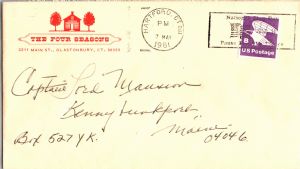 THE FOUR SEASONS
2211 MAIN ST., GLASTONBURY, CT. 06033
HARTFORD, CT
PM
7 MAY
1981
B
US Postage
Captain Lord Mansion
Kennybunkport
Box 527 YK.
Maine
04046